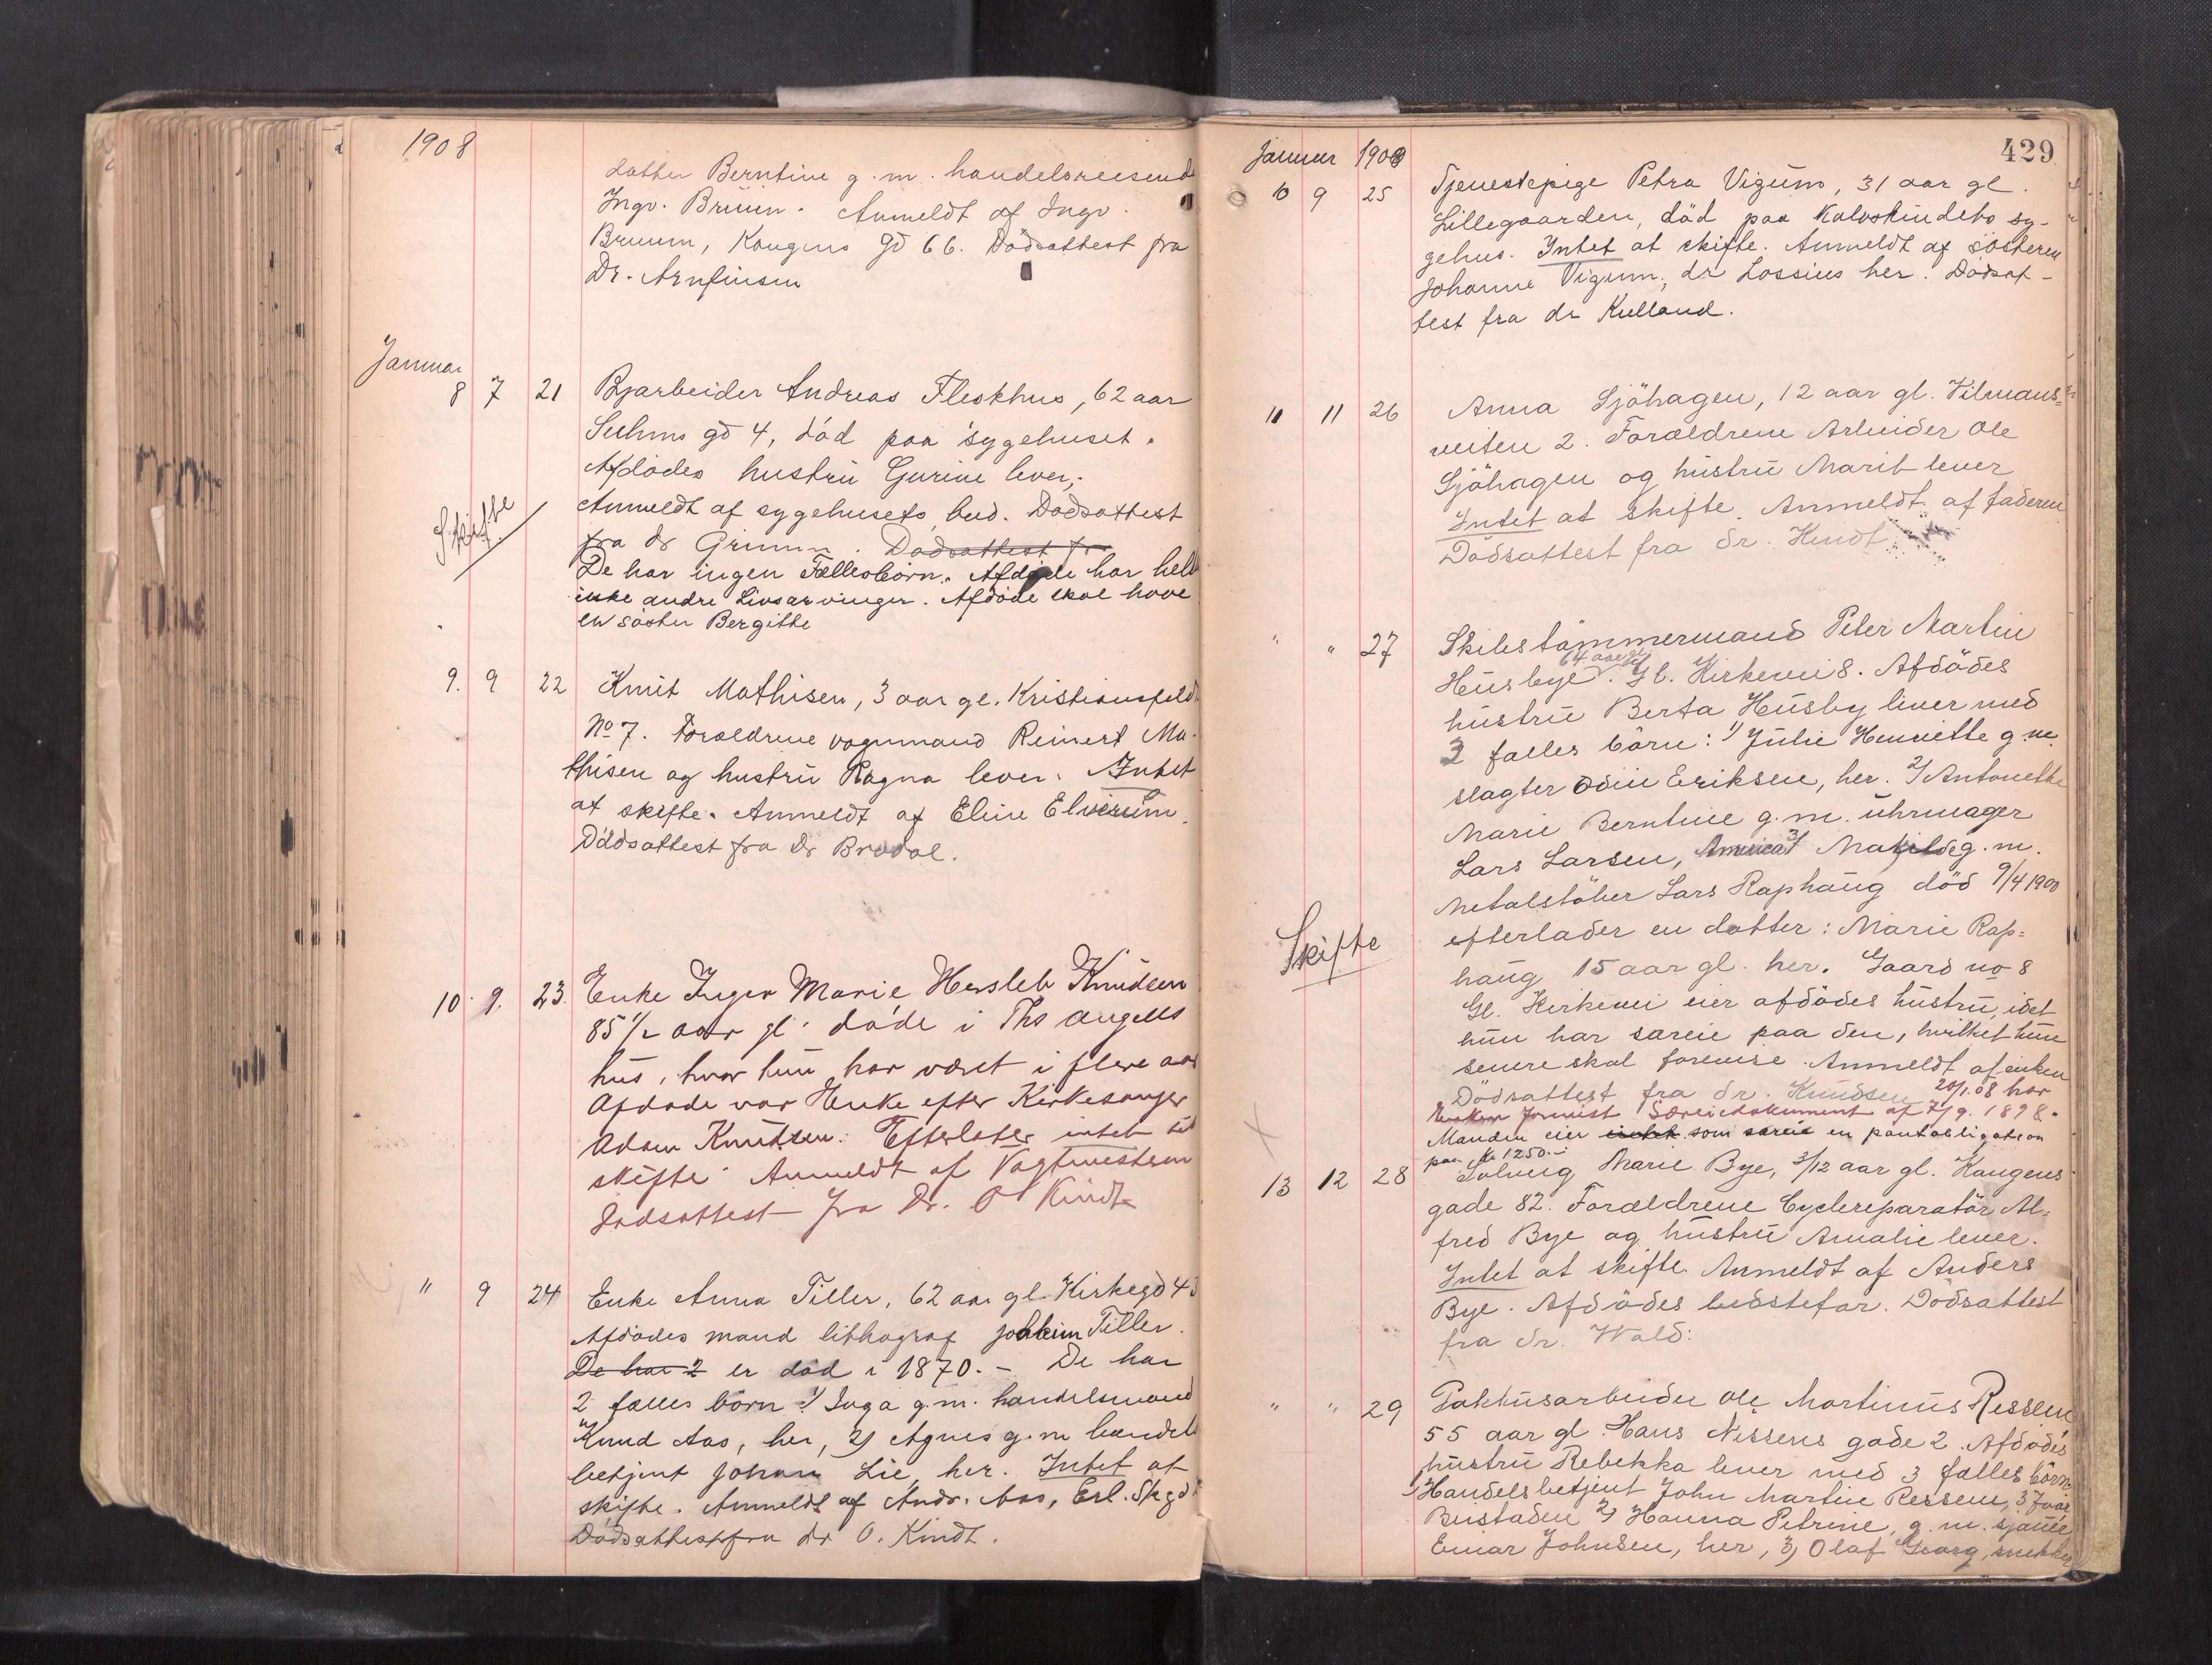 1908
datter Berntine g. m. handelsreisende
Ingv. Bruun. Anmeldt af Ingv.
Bruun, Kongens gd 66. Dödsattest fra
Dr. Arnfinsen
Januar
8 7 21 Byarbeider Andreas Fleskhus, 62 aar
Suhms gd 4, död paa sygehuset.
Afdödes hustru Gurine lever,
Anmeldt af sygehusets bud. Dödsattest
Skifte
fra dr Grimm. Dødsattest fr
De har ingen Fællesbörn. Afdøde har heller
ikke andre Livsarvinger. Afdöde skal have
en söster Bergitte
9. 9 22 Knut Mathisen, 3 aar gl. Kristiansfeldt
No 7. Forældrene vognmand Reinert Ma-
thisen og hustru Ragna lever. Intet
at skifte. Anmeldt af Eline Elverum.
Dödsattest fra Dr Brodal.
10 9. 23. Enke Inger Marie Hersleb Knudsen
85 1/2 aar gl. döde i Ths Angells
hus, hvor hun har været i flere aar
Afdøde var Enke efter Kirkesanger
Adam Knudsen. Efterlater intet til
skifte. Anmeldt af Vagtmesteren
Dødsattest fra Dr. O Kindt
" 9 24 Enke Anna Tiller, 62 aar gl. Kirkegd 43
Afdödes mand lithograf Joakim Tiller.
De har 2 er död i 1870. - De har
2 fælles börn: 1) Inga g. m. handelsmand
Knud Aas, her, 2) Agnes g. m. handels
betjent Johan Lie, her. Intet at
skifte. Anmeldt af Andr. Aas, Erl. Sk gd
Dödsattest fra dr O. Kindt.
429
Januar 1908
10 9 25 Tjenestepige Petra Vigum, 31 aar gl.
Lillegaarden, död paa Kalvskindets sy-
gehus. Intet at skifte. Anmeldt af Søsteren
Johanne Vigum, dr Lossius her. Dødsat-
test fra dr Kulland.
11 11 26 Anna Sjöhagen, 12 aar gl. Vilmans-
veiten 2. Forældrene Arbeider Ole
Sjöhagen og hustru Marit lever
Intet at skifte. Anmeldt af faderen
Dödsattest fra dr. Kindt
" " 27 Skibstömmermand Peter Martin
64 aar gl
Husbye. Gl. Kirkevei 8. Afdödes
hustru Berta Husby lever med
3 fælles börn: 1) Julie Henriette g. m.
slagter Odin Eriksen, her. 2) Antonette
Marie Berntine g. m. uhrmager
Lars Larsen, Amerika 3) Matilde g. m.
Metalstöber Lars Raphaug död 9/4 1900
efterlader en datter: Marie Rap-
Skifte
haug 15 aar gl. her. Gaard no 8
Gl. Kirkevei eier afdödes hustru, idet
hun har særeie paa den, hvilket hun
senere skal forevise. Anmeldt af enken
Dödsattest fra dr. Knudsen 20/1. 08 har
Enken forevist Særeiedokument af 7/9. 1898.
Manden eier intet som særeie en pantobligation
paa Kr 1250.-
13 12 28 Solveig Marie Bye, 3/12 aar gl. Kongens
gade 82. Forældrene Cyclereparatör Al-
fred Bye og hustru Amalie lever.
Intet at skifte. Anmeldt af Anders
Bye. Afdödes bedstefar. Dödsattest
fra dr. Wald:
" " 29 Pakhusarbeider Ole Martinus Ressem
55 aar gl. Hans Nissens gade 2. Afdødes
hustru Rebekka lever med 3 fælles börn
1) Handelsbetjent John Martin Ressem, 37 aar
2) Hanna Petrine, g. m. sjauer
Einar Johnsen, her, 3) Olaf Georg, snekker